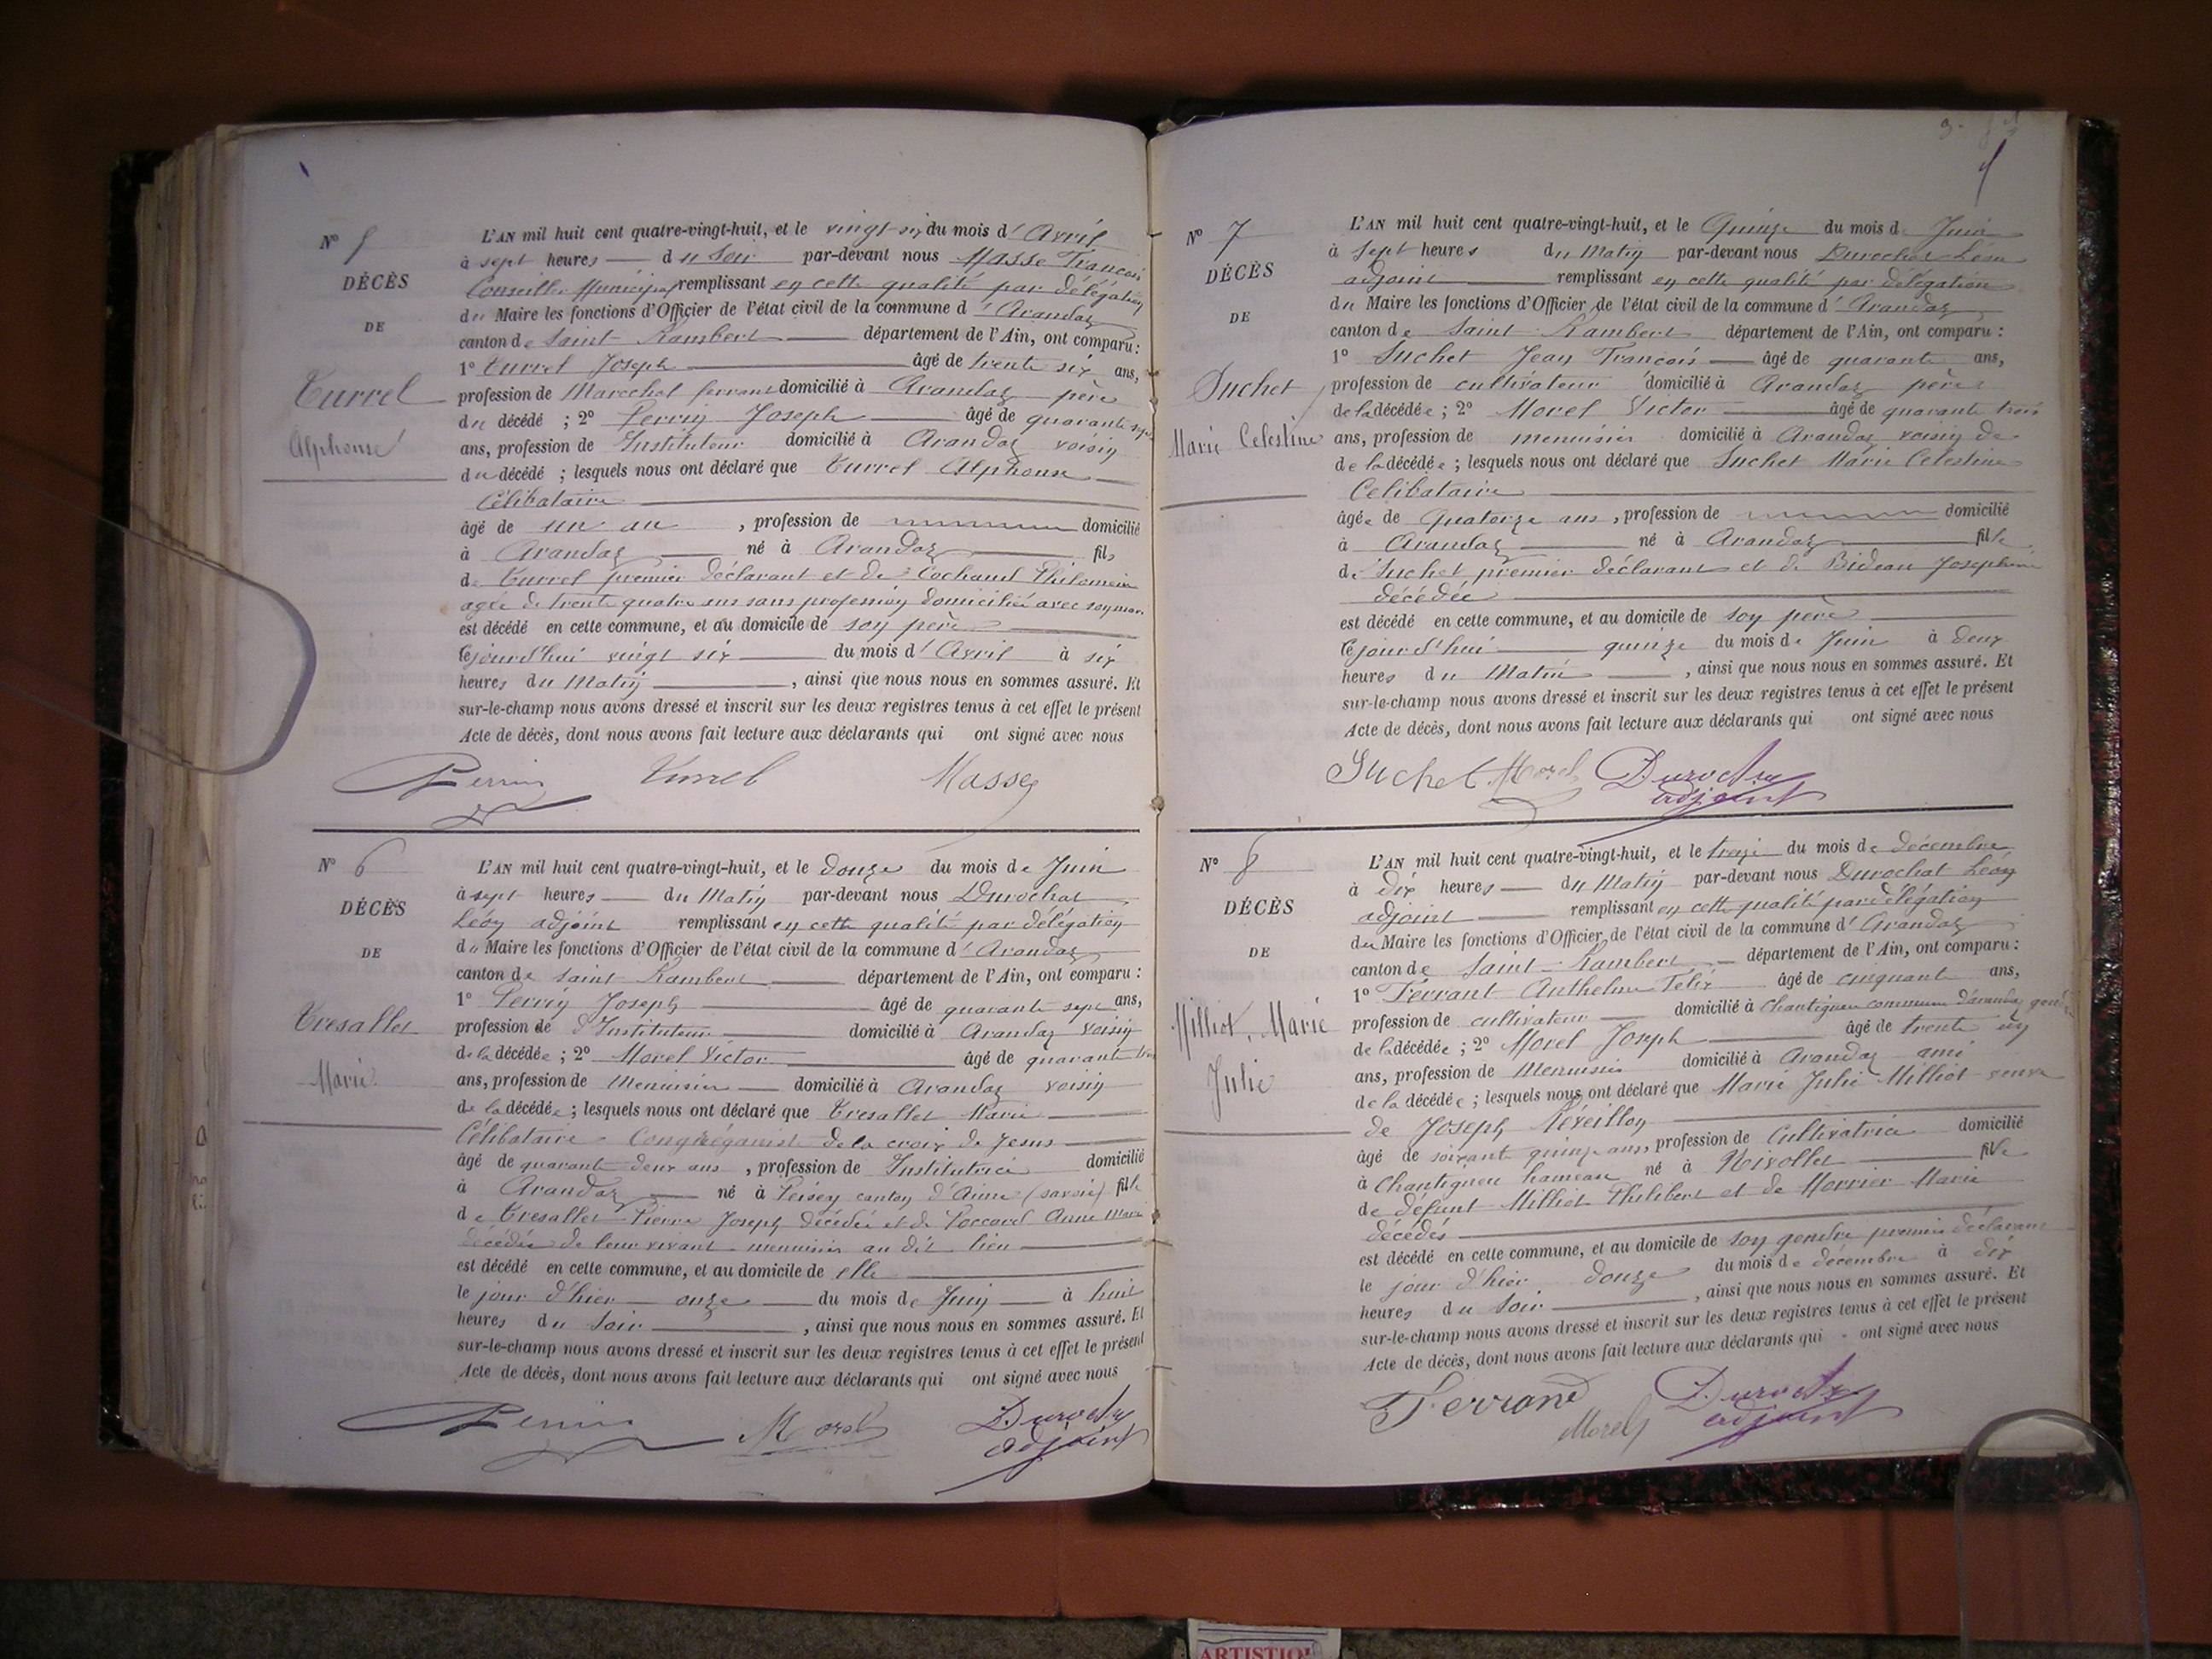 N° 5
DÉCÈS
DE
Turrel
Alphonse
L'AN mil huit cent quatre-vingt-huit, et le vingt-six du mois d'Avril
à sept heures du Soir par-devant nous Masse François
Conseiller Municipal remplissant en cette qualité par délégation
du Maire les fonctions d'Officier de l'état civil de la commune d'Arandaz
canton de Saint Rambert département de l'Ain, ont comparu :
1° Turrel Joseph âgé de trente six ans,
profession de Marechal ferrant domicilié à Arandaz père
du décédé ; 2° Perrin Joseph âgé de quarante sept
ans, profession de Instituteur domicilié à Arandaz voisin
du décédé ; lesquels nous ont déclaré que Turrel Alphonse
Célibataire
âgé de un an , profession de domicilié
à Arandaz né à Arandaz fils
de Turrel premier déclarant et de Cochand Philomène
agée de trente quatre ans sans profession domiciliée avec son mari
est décédé en cette commune, et au domicile de son père
lejourd'hui vingt six du mois d'Avril à six
heures du Matin , ainsi que nous nous en sommes assuré. Et
sur-le-champ nous avons dressé et inscrit sur les deux registres tenus à cet effet le présent
Acte de décès, dont nous avons fait lecture aux déclarants qui ont signé avec nous
Perrin Turrel Masse
N° 6
DÉCÈS
DE
Tresallet
Marie
L'AN mil huit cent quatre-vingt-huit, et le douze du mois de Juin
à sept heures du Matin par-devant nous Durochat
Léon adjoint remplissant en cette qualité par délégation
du Maire les fonctions d'Officier de l'état civil de la commune d'Arandaz
canton de saint Rambert département de l'Ain, ont comparu :
1° Perrin Joseph âgé de quarante sept ans,
profession de Instituteur domicilié à Arandaz voisin
de la décédée ; 2° Morel Victor âgé de quarante trois
ans, profession de Menuisier domicilié à Arandaz voisin
de la décédée ; lesquels nous ont déclaré que Tresallet Marie
Célibataire Congréganiste de la croix de Jesus
âgé de quarante deux ans , profession de Institutrice domicilié
à Arandaz né à Peisey canton d'Aime (savoie) fille
de Tresallet Pierre Joseph décédé et de Poccard Anne Marie
décédée de leur vivant menuisier au dit lieu
est décédé en cette commune, et au domicile de elle
le jour d'hier onze du mois de Juin à huit
heures du Soir , ainsi que nous nous en sommes assuré. Et
sur-le-champ nous avons dressé et inscrit sur les deux registres tenus à cet effet le présent
Acte de décès, dont nous avons fait lecture aux déclarants qui ont signé avec nous
Perrin Morel Durochat
adjoint
N° 7
DÉCÈS
DE
Suchet
Marie Celestine
L'AN mil huit cent quatre-vingt-huit, et le Quinze du mois de Juin
à Sept heures du Matin par-devant nous Durochat Léon
adjoint remplissant en cette qualité par délégation
du Maire les fonctions d'Officier de l'état civil de la commune d'Arandaz
canton de Saint Rambert département de l'Ain, ont comparu :
1° Suchet Jean François âgé de quarante ans,
profession de cultivateur domicilié à Arandaz père
de la décédée ; 2° Morel Victor âgé de quarante trois
ans, profession de menuisier domicilié à Arandaz voisin de
de la décédée ; lesquels nous ont déclaré que Suchet Marie Celestine
Celibataire
âgée de Quatorze ans , profession de domicilié
à Arandaz né à Arandaz fille
de Suchet premier déclarant et de Bideau Josephine
décédée
est décédé en cette commune, et au domicile de son père
lejourd'hui quinze du mois de Juin à deux
heures du Matin , ainsi que nous nous en sommes assuré. Et
sur-le-champ nous avons dressé et inscrit sur les deux registres tenus à cet effet le présent
Acte de décès, dont nous avons fait lecture aux déclarants qui ont signé avec nous
Suchet Morel Durochat
adjoint
N° 8
DÉCÈS
DE
Milliot, Marie
Julie
L'AN mil huit cent quatre-vingt-huit, et le treize du mois de décembre
à dix heures du Matin par-devant nous Durochat Léon
adjoint remplissant en cette qualité par délégation
du Maire les fonctions d'Officier de l'état civil de la commune d'Arandaz
canton de Saint Rambert département de l'Ain, ont comparu :
1° Ferrant Anthelme Félix âgé de cinquante ans,
profession de cultivateur domicilié à Chantignen commune d'arandaz gendre
de la décédée ; 2° Morel Joseph âgé de trente un
ans, profession de Menuisier domicilié à Arandaz ami
de la décédée ; lesquels nous ont déclaré que Marie Julie Milliot veuve
de Joseph Réveillon
âgé de soixante quinze ans, profession de Cultivatrice domicilié
à Chantignen hameau né à fille
de défunt Milliot Philibert et de Morrier Marie
décédés
est décédé en cette commune, et au domicile de son gendre premier déclarant
le jour d'hier douze du mois de décembre à dix
heures du Soir , ainsi que nous nous en sommes assuré. Et
sur-le-champ nous avons dressé et inscrit sur les deux registres tenus à cet effet le présent
Acte de décès, dont nous avons fait lecture aux déclarants qui ont signé avec nous
Ferrand Morel Durochat
adjoint